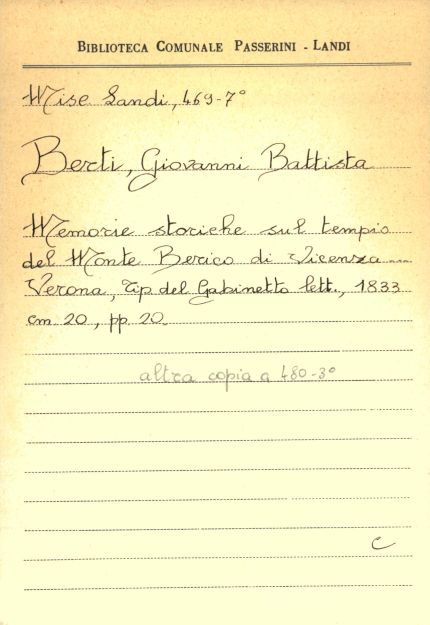 BIBLIOTECA COMUNALE PASSERINI - LANDI
Misc Landi, 469-7°
Berti, Giovanni Battista
Memorie storiche sul tempio
del Monte Berico di Vicenza ...
Verona, Tip del Gabinetto lett., 1833
cm 20, pp. 20
altra copia a 480-3°
C